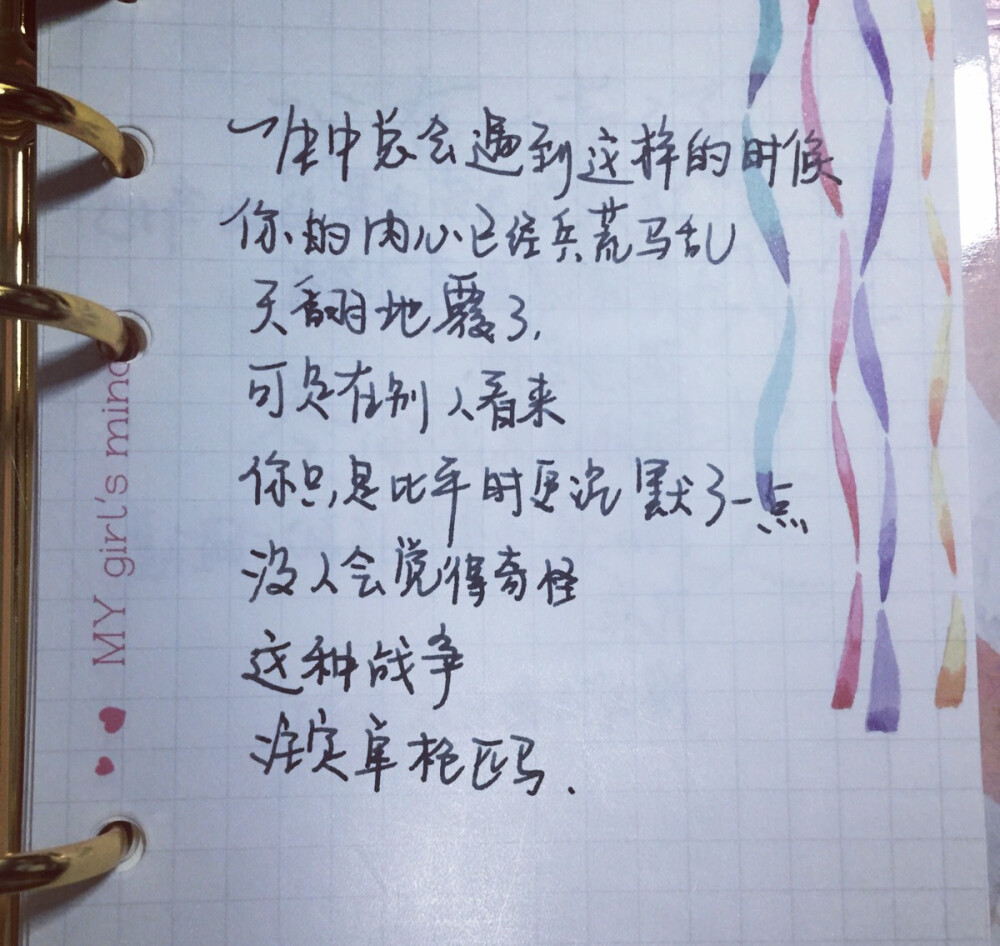 一生中总会遇到这样的时候
你的内心已经兵荒马乱
天翻地覆了，
可是在别人看来
你只是比平时更沉默了一点
没人会觉得奇怪
这种战争
注定单枪匹马．
MY girl's mind